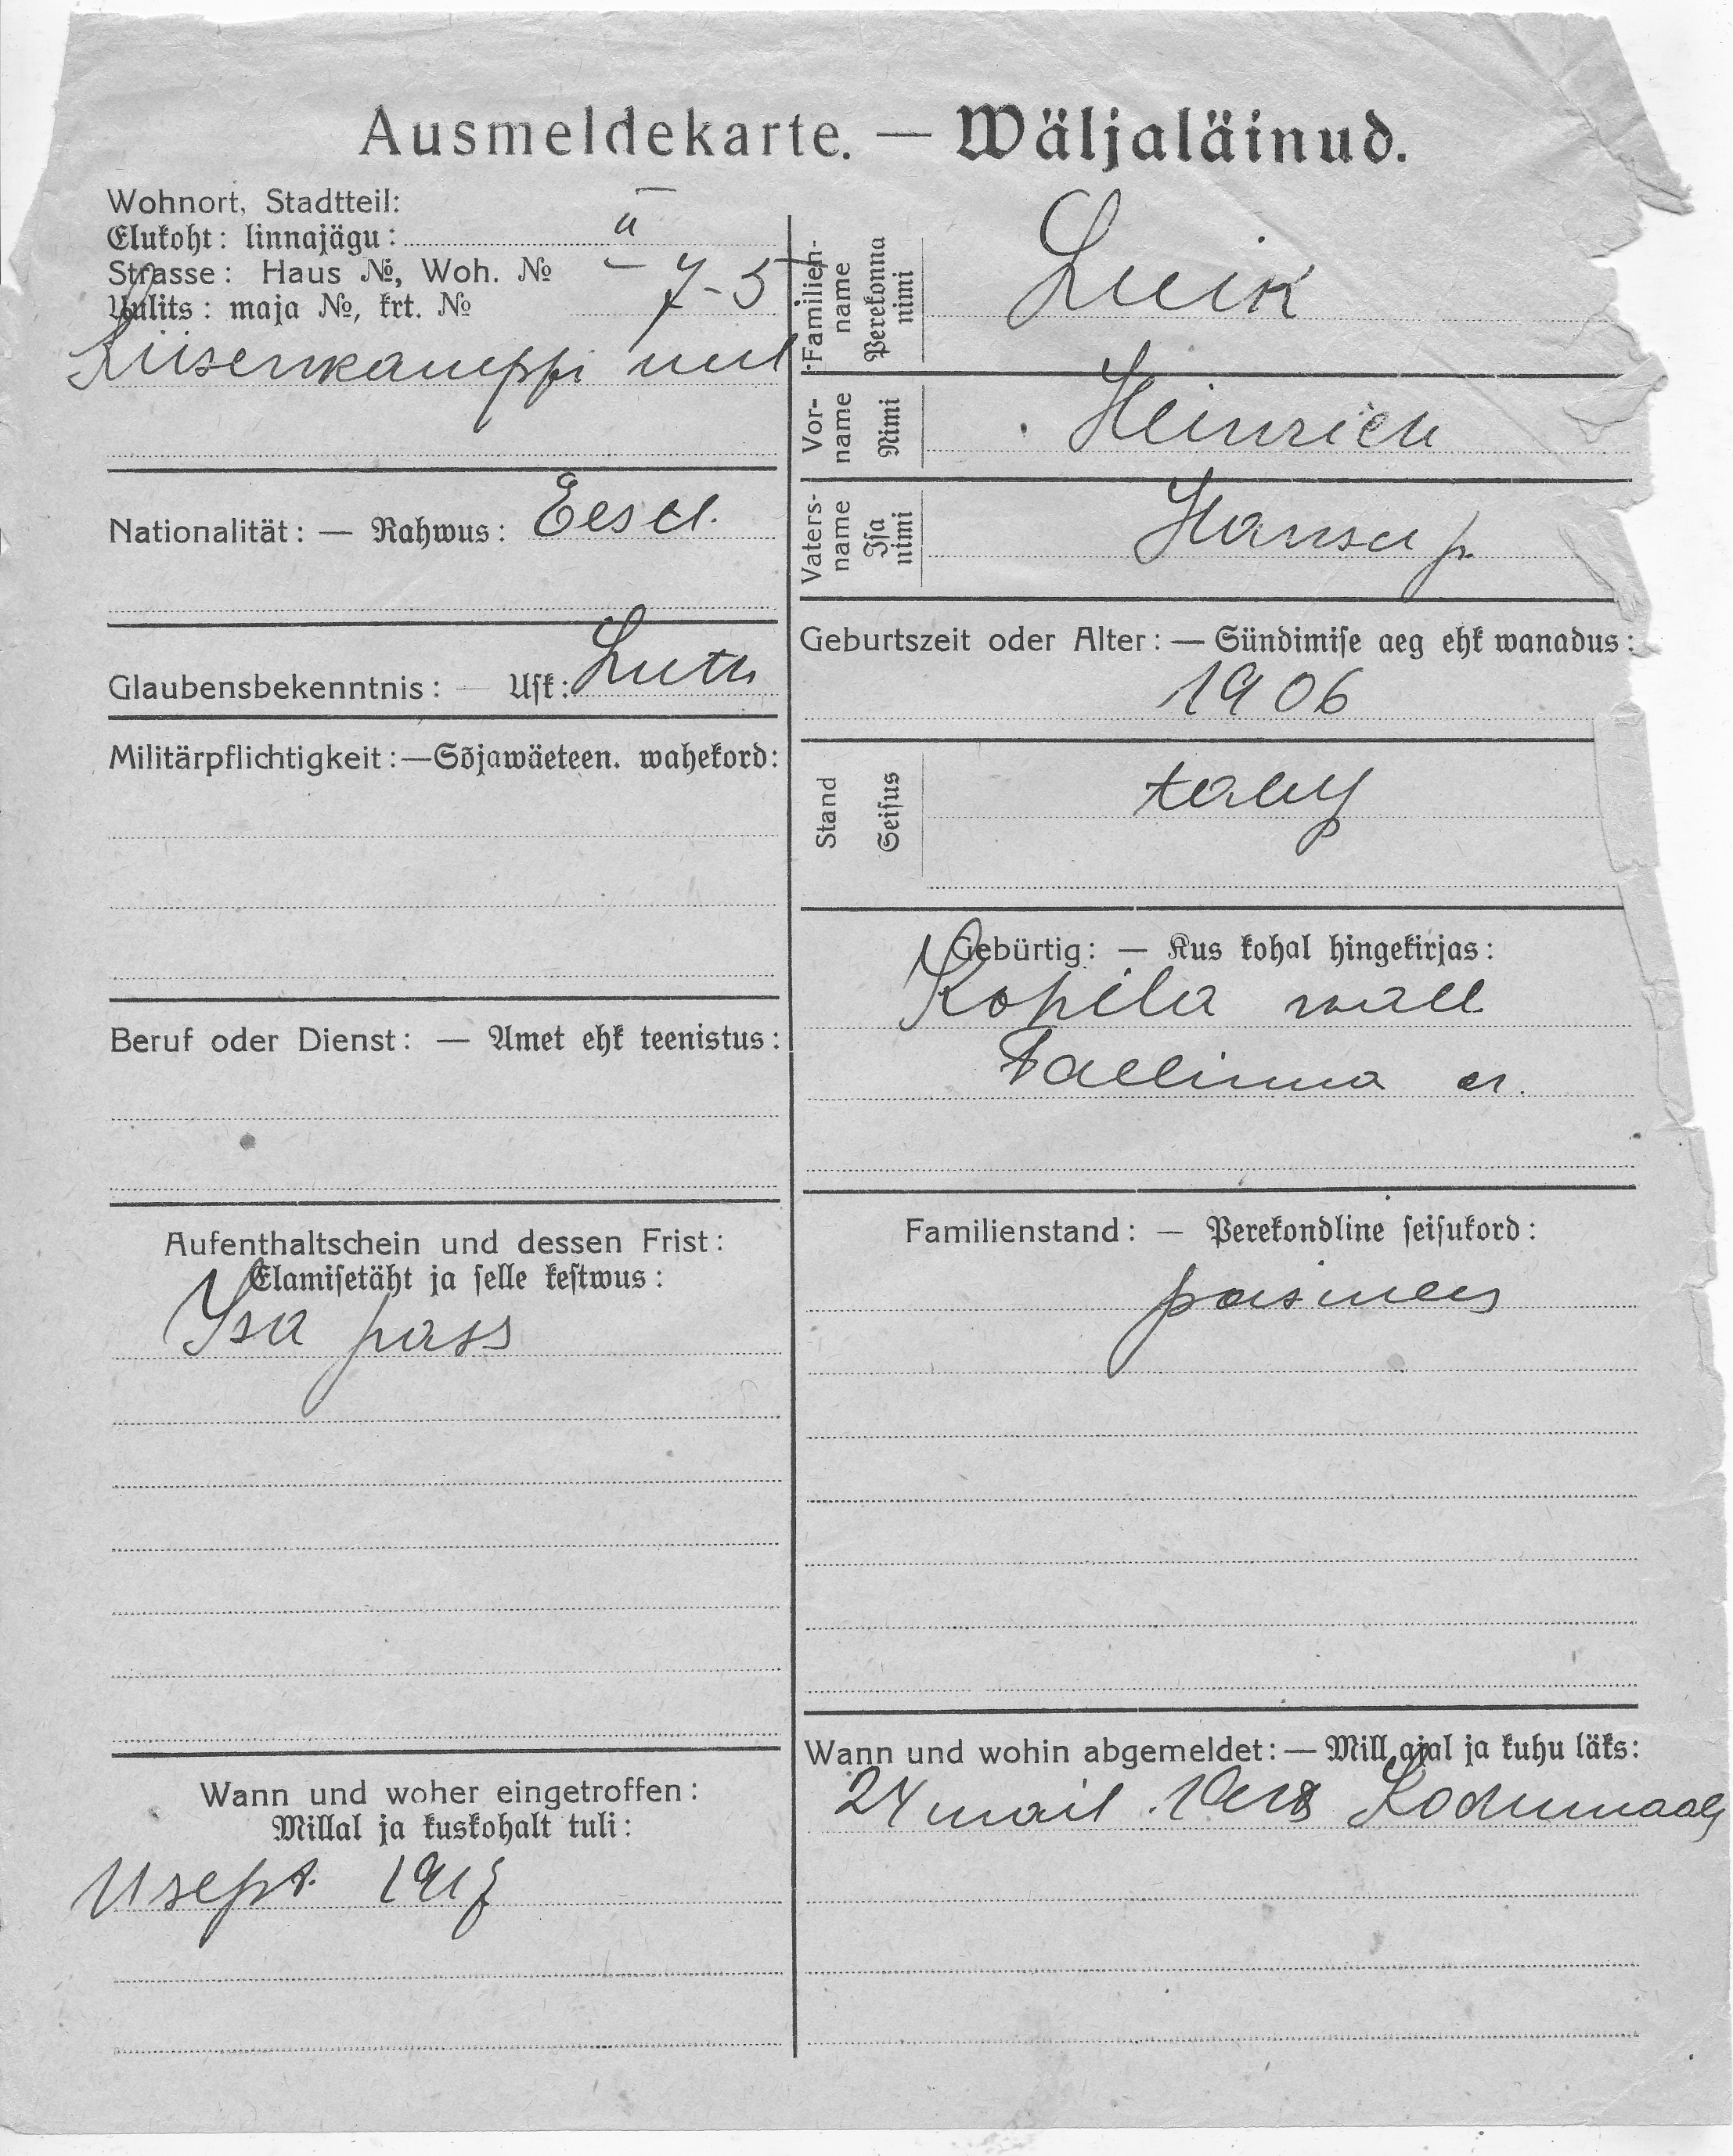 Ausmeldekarte. — Wäljaläinud.
Wohnort, Stadtteil:
Elukoht: linnajägu: II
Strasse: Haus №, Woh. №
Uulits: maja №, krt. № 7-5
Küsenkampfi uul
Nationalität: — Rahwus: Eesti.
Glaubensbekenntnis: — Usk: Luth
Militärpflichtigkeit: — Sõjawäeteen. wahekord:
Beruf oder Dienst: — Amet ehk teenistus:
Aufenthaltschein und dessen Frist:
Elamisetäht ja selle kestwus:
Isa pass
Wann und woher eingetroffen:
Millal ja kuskohalt tuli:
11 sept. 1917
Familien-name Perekonna nimi Luik
Vor-name Nimi Heinrich
Vaters-name Isa nimi Hansu p.
Geburtszeit oder Alter: — Sündimise aeg ehk wanadus:
1906
Stand Seisus talup
Gebürtig: — Kus kohal hingekirjas:
Kohila wall
Tallinna kr.
Familienstand: — Perekondline seisukord:
poismees
Wann und wohin abgemeldet: — Mill ajal ja kuhu läks:
24 mail 1918 Kodumaale